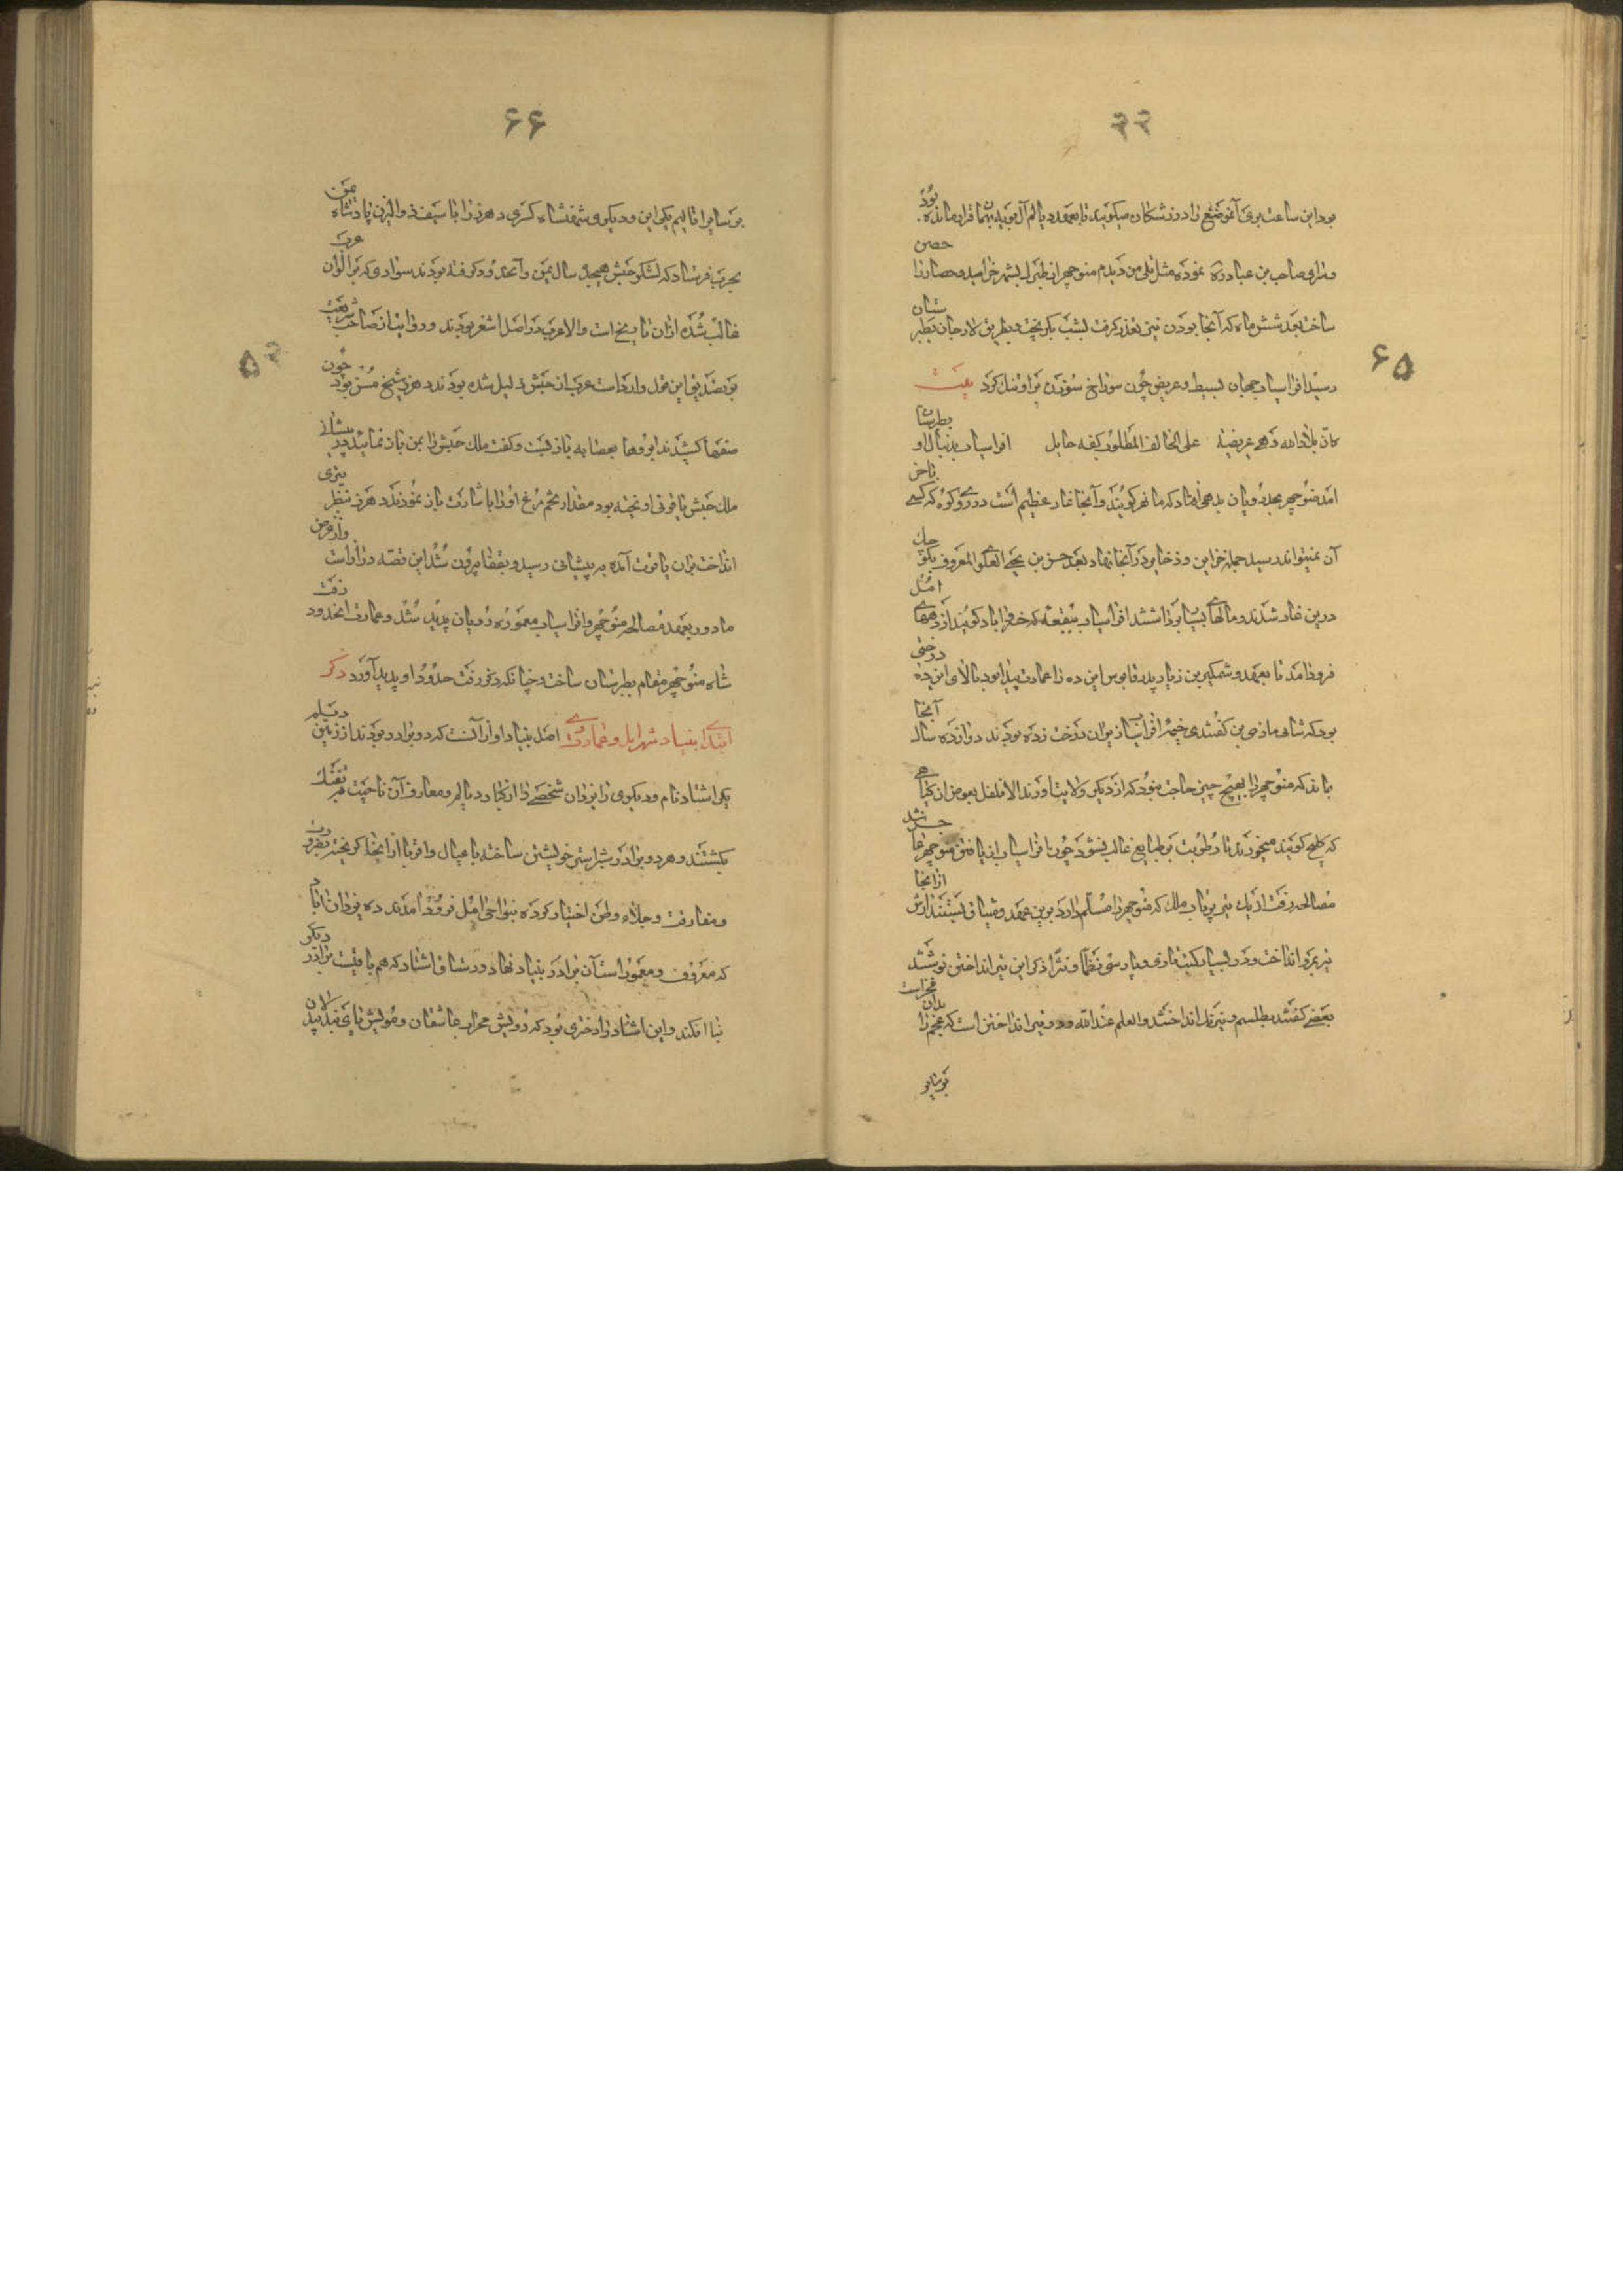 ۶۵
بود این ساعت بری آن موضع را دوزشکان میکویند تا بعهد دیالم آل بویه بنهما قرار مانده بود
و سرای صاحب بن عباد دزه نموده مثل تلی من دیدم منوچهر از طبرک بشهر خرامید و حصار را حصن
ساخت بعد شش ماه که آنجا بودن نیز متعذر کرفت بشب بکریخت و بطریق لارجان بطبر ستان
رسید افراسیاب جهان بسیط و عریض چون سوراخ سوزن برو تنک کرد بیت
کان بلاد الله و هی عریضة على الخائف المطلوب کفة حابل افراسیاب بدنبال او بطبرستان
امد منوچهر بحد رویان بدهی افتاد که مانهیر کویند و آنجا غار عظیم است در روی کوه که کسی باخر
آن نمیتواند رسید جمله خزاین و ذخایر در آنجا نهاد بعد حسن بن یحیی العلوی المعروف بکوچک
درین غار شدند و مالهای بسیار برداشتند افراسیاب ببقعه که خسرواباد کویند از دههای امل
فرود آمد تا بعهد وشمکیر بن زیار پدر قابوس این ده را عمارت پیدا بود بالای این ده درختی
بود که شانی مازی بن کفتندی خیمه افراسیاب زیر آن درخت زده بودند دوازده سال آنجا
بماند که منوچهر را بهیچ چیز حاجت نبود که از دیکر ولایت اورند الا فلفل بعوض ان کیاهی
که کلیج کویند میخوردند تا رطوبت بر طبایع غالب نشود چون افراسیاب از یافتن منوچهر عاجز شد
مصالحه رفت از یک تیر پرتاب ملک که منوچهر را مسلم دارد برین عهد و میثاق بستند آرش ازانجا
تیر بمرو انداخت و در بسیار کتب تازی و پارسی نظما و نثرا ذکر این تیر انداختن نوشتند
بعضی کفتند بطلسم و نیرنک انداختند والعلم عند الله و دو تیر انداختن است که عجم را بدان فخرست
بر سایر
۶۶
بر سایر اقالیم یکی این و دیکری شهنشاه کسری وهرز را با سیف ذو الیزن پادشاه یمن
بحرب فرستاد که لشکر حبش هیجده سال یمن و آنحدود کرفته بودند سوادی که بر الوان عرب
غالب شده ازان تاریخ است والا عرب در اصل اشقر بودند و روایت از صاحب شریعت
بر تصدیق این قول وارداست عرب از حبش ذلیل شده بودند وهرز شیخ مسن بود چون
صفها کشیدند ابروها بعصابه بازبست و کفت ملک حبش را بمن باز نمائید بر پیشانی
ملک حبش یاقوتی اویخته بود مقدار تخم مرغ او را باشارت باز نمودند وهرز بنظر تیری
انداخت بران یاقوت آمده به پیشانی رسید و بقفا بیرون شد این قصه درازاست و از غرض
ما دور بعهد مصالحه منوچهر و افراسیاب معموره رویان پدید شد و عمارت انحدود رفت
شاه منوچهر مقام بطبرستان ساخت و چنانکه ذکر رفت حدود او پدید آورد ذکر
ابتدای بنیاد شهر امل و عمارت وی اصل بنیاد او آن است که دو برادر بودند از زمین دیلم
یکی اشتاد نام و دیکری را یزدان شخصی را از کبار دیالم و معارف آن ناحیت بفتک
بکشتند و هر دو برادر شب راستی خویشتن ساخته با عیال و اقربا ازانجا کریختند و بضرورت
و مفارقت و جلاء وطن اختیار کرده بنواحی امل فرود آمدند ده یزدان اباد
که معروف و معمور است آن برادر بنیاد نهاد و رستاق اشتاد که هم باقیست برادر دیکر
بنا افکند و این اشتاد را دختری بود که رویش محراب عاشقان و مویش پای بند بیدلان